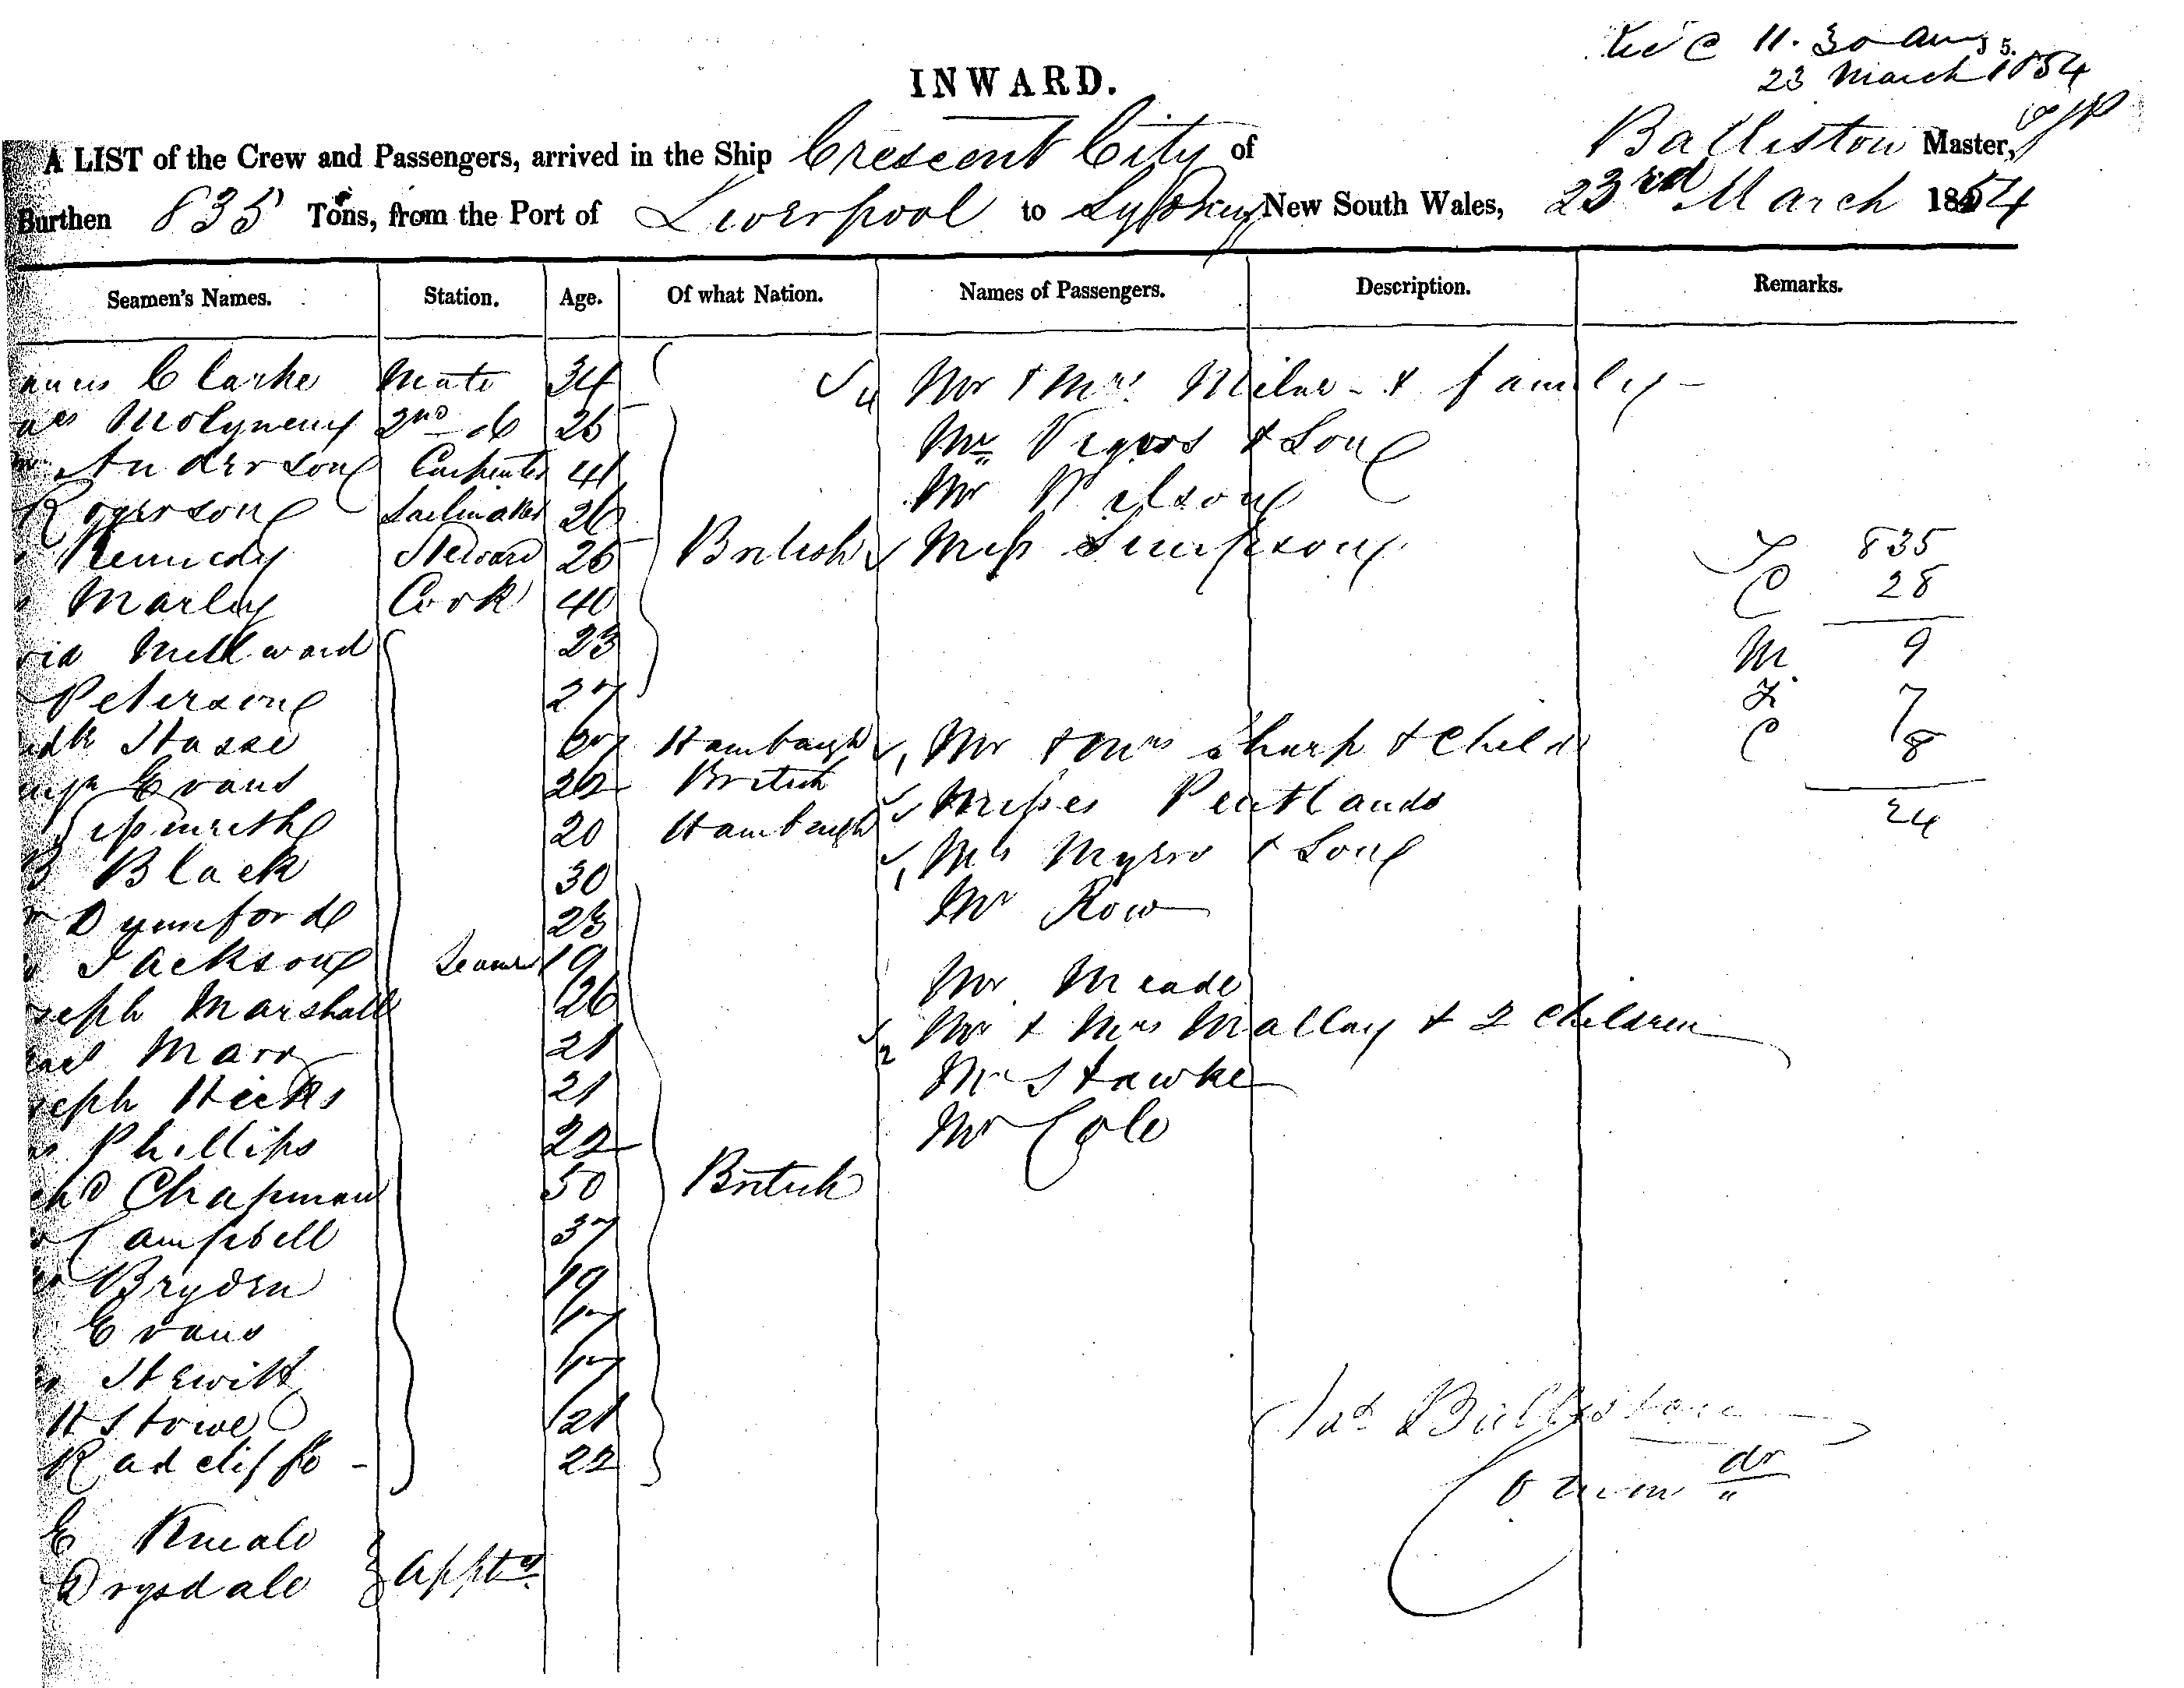 Rec'd 11.30 am
23 March 1854
INWARD.
A LIST of the Crew and Passengers, arrived in the Ship Crescent City of Balliston Master,
Burthen 835 Tons, from the Port of Liverpool to Sydney New South Wales, 23rd March 1854
Seamen's Names. Station. Age. Of what Nation. Names of Passengers. Description. Remarks.
Clarke Mate 34 4 Mr & Mrs Milne - & family -
Molyneux 2nd do 25 Mr Vigors & Son
Anderson Carpenter 41 Mr Wilson
Rogerson Sailmaker 26
Kennedy Steward 26 British Miss Simpson T 835
Marley Cook 40 C 28
Millward 23 M 9
Peterson 27 F 7
Hasse Hamburgh 1 Mr & Mrs Sharp & Child C 8
Evans 22 British Misses Pentlands 24
20 Hamburgh
B Black 30 1 Mrs Myers & Son
Dymford 23 Mr Row
Jackson Seamen 19 Mr Meade
seph Marshall 26 2 Mr & Mrs Mallay & 2 Children
Marr 21 Mr Hawke
seph Hicks 21 Mr Cole
Phillips 22
Chapman 50 British
Campbell 37
Bryden 19
Evans 17
Hewitt 17
H Stowe 21
Radcliffe - 22
Jas Balliston
Comm dr
E Kneale
Drysdale Appts